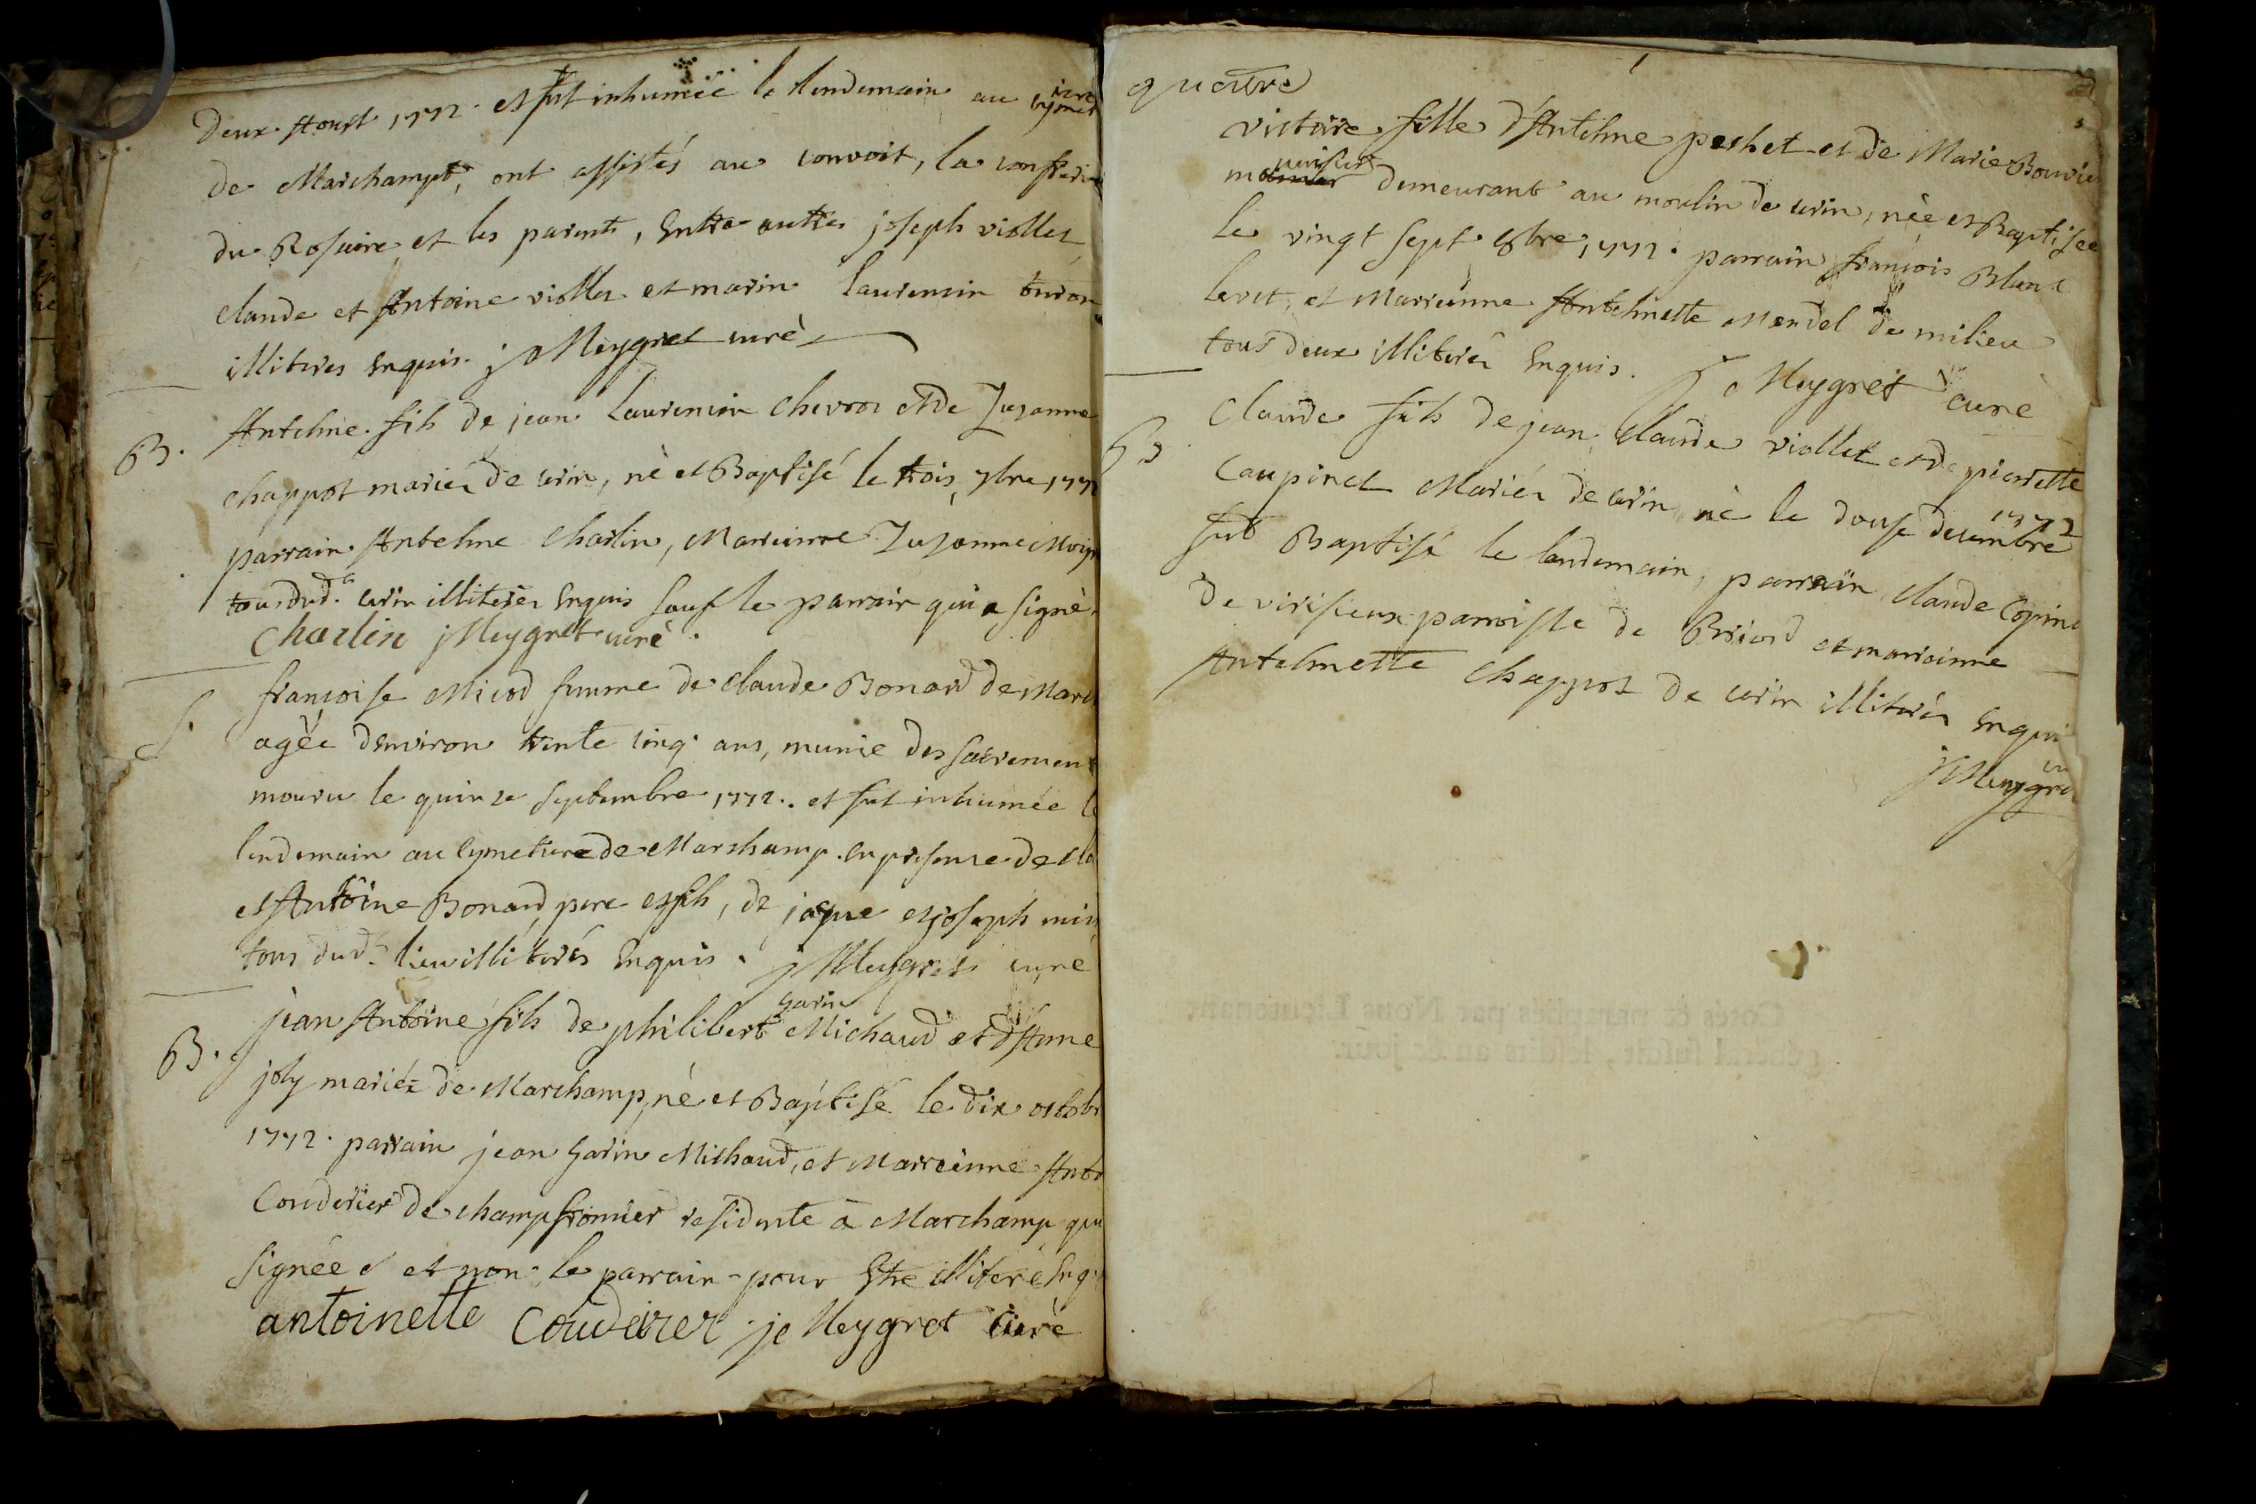 deux Aoust 1772. et fut inhumée le lendemain au cymet
iere
de Marchampt, ont assistés au convoit, la confreri
du Rosaire et les parents, Entre autres joseph viollet
claude et Antoine viollet et marin laurensin
illiteres Enquis. j Meygret curè
B. Antelme fils de jean laurensin chevron et de Suzanne
chappot mariés de cerin, nè et Baptisé le trois, 7bre 1772
parrain Antelme charlin, Marienne Suzanne
tous dud. cerin illiterés Enquis sauf le parrain qui a signè.
charlin jMeygret curè.
S. françoise Micod femme de claude Bonard de Marc
agèe d'Environ trente cinq ans, munie des sacrement
mouru le quinze septembre 1772.. et fut inhumée le
lendemain au cymetiere de Marchamp. En presence de cla
et Antoine Bonard pere et fils, de jaque et joseph mic
tous dud. lieu illiterés Enquis. j Meygret curé
garin
B. jean Antoine fils de philibert Michaud et d'Anne
joly mariéz de Marchamp, né et Baptisé le dix octobr
1772. parrain jean garin Michaud, et Marreinne Anto
Couderier de champfromier residente à Marchamp qui
signée et non le parrain pour Etre illiteré Enq
antoinette Couderer je Meygret Curè
quatre
victoire fille d'Antelme peshet et de Marie Bouvier
demeurant au moulin de cerin, nèe et Baptisèe
le vingt sept 8bre 1772. parrain françois Blanc
et Marreinne Antelmette Mendel de milieu
tous deux illiterés Enquis. J Meygret curè
B Claude fils de jean claude viollet et de pierrette
Coupinet Mariés de cerin nè le douse decembre
1772
fut Baptisé le lendemain, parrain claude Copine
de virisieux parroisse de Briord et marrainne
Antelmette Chappot de cerin illiterés Enqui
cu
jMeygre
Coté & paraphés par Nous Lieutenant
général susdit, lesdits an & jour.